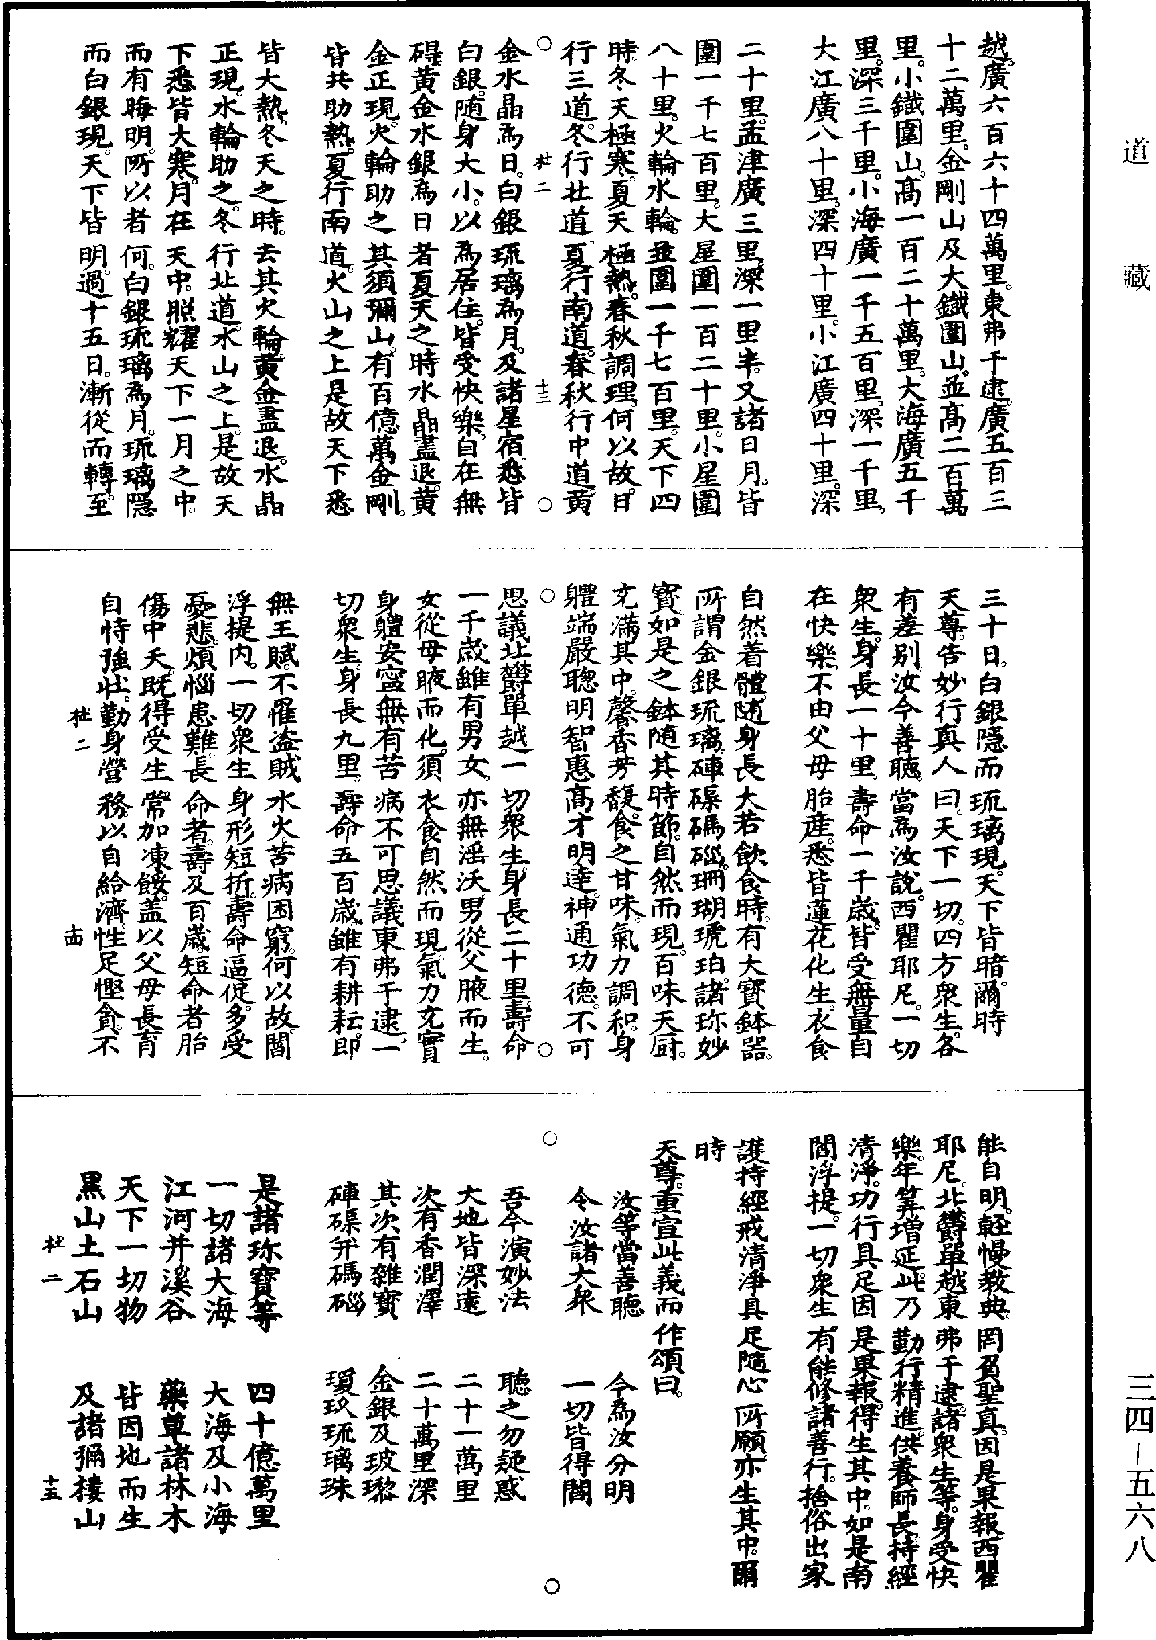 道藏
三四—五六八
越。廣六百六十四萬里。東弗千逮。廣五百三
十二萬里。金剛山及大鐵圍山。並高二百萬
里。小鐵圍山。高一百二十萬里。大海廣五千
里。深三千里。小海廣一千五百里。深一千里。
大江廣八十里。深四十里。小江廣四十里。深
二十里。孟津廣三里。深一里半。又諸日月。皆
圍一千七百里。大星圍一百二十里。小星圍
八十里。火輪水輪。並圍一千七百里。天下四
時。冬天極寒。夏天極熱。春秋調理。何以故。日
行三道。冬行北道。夏行南道。春秋行中道。黃
杜二 十三
金水晶為日。白銀琉璃為月。及諸星宿。悉皆
白銀。隨身大小。以為居住。皆受快樂。自在無
礙。黃金水銀為日者。夏天之時。水晶盡退。黃
金正現。火輪助之。其須彌山。有百億萬金剛。
皆共助熱。夏行南道。火山之上。是故天下悉
皆大熱。冬天之時。去其火輪。黃金盡退。水晶
正現。水輪助之。冬行北道。水山之上。是故天
下悉皆大寒。月在天中。照耀天下。一月之中。
而有晦明。所以者何。白銀琉璃為月。琉璃隱
而白銀現。天下皆明。過十五日。漸從而轉。至
三十日。白銀隱而琉璃現。天下皆暗。爾時
天尊告妙行真人曰。天下一切。四方眾生。各
有差別。汝今善聽。當為汝說。西瞿耶尼。一切
眾生。身長一十里。壽命一千歲。皆受無量自
在快樂。不由父母胎產。悉皆蓮花化生。衣食
自然着體。隨身長大。若飲食時。有大寶鉢器。
所謂金銀琉璃。硨磲碼碯。珊瑚琥珀。諸珎妙
寶。如是之鉢。隨其時節。自然而現。百味天廚。
充滿其中。馨香芳馥。食之甘味。氣力調和。身
軆端嚴。聰明智惠。高才明達。神通功德。不可
思議。北欝單越。一切眾生。身長二十里。壽命
一千歲。雖有男女。亦無淫沃。男從父腋而生。
女從母腋而化。須衣食自然而現。氣力充實。
身軆安寧。無有苦病。不可思議。東弗千逮。一
切眾生。身長九里。壽命五百歲。雖有耕耘。即
無王賦。不罹盜賊。水火苦病困窮。何以故。閻
浮提內。一切眾生。身形短折。壽命逼促。多受
憂悲。煩惱患難。長命者。壽及百歲。短命者。胎
傷中夭。既得受生。常加凍餒。蓋以父母長育。
自恃強壯。勤身營務。以自給濟。性足慳貪。不
杜二 十四
能自明。輕慢教典。罔負聖真。因是果報。西瞿
耶尼。北欝單越。東弗千逮。諸眾生等。身受快
樂。年筭增延。此乃勤行精進。供養師長。持經
清淨。功行具足。因是果報。得生其中。如是南
閻浮提。一切眾生。有能修諸善行。捨俗出家。
護持經戒。清淨具足。隨心所願。亦生其中。爾
時
天尊。重宣此義而作頌曰。
汝等當善聽 今為汝分明
令汝諸大眾 一切皆得聞
吾今演妙法 聽之勿疑惑
大地皆深遠 二十一萬里
次有香潤澤 二十萬里深
其次有雜寶 金銀及玻瓈
硨磲并碼碯 瓊玖琉璃珠
是諸珎寶等 四十億萬里
一切諸大海 大海及小海
江河并溪谷 藥草諸林木
天下一切物 皆因地而生
黑山土石山 及諸彌樓山
杜二 十五